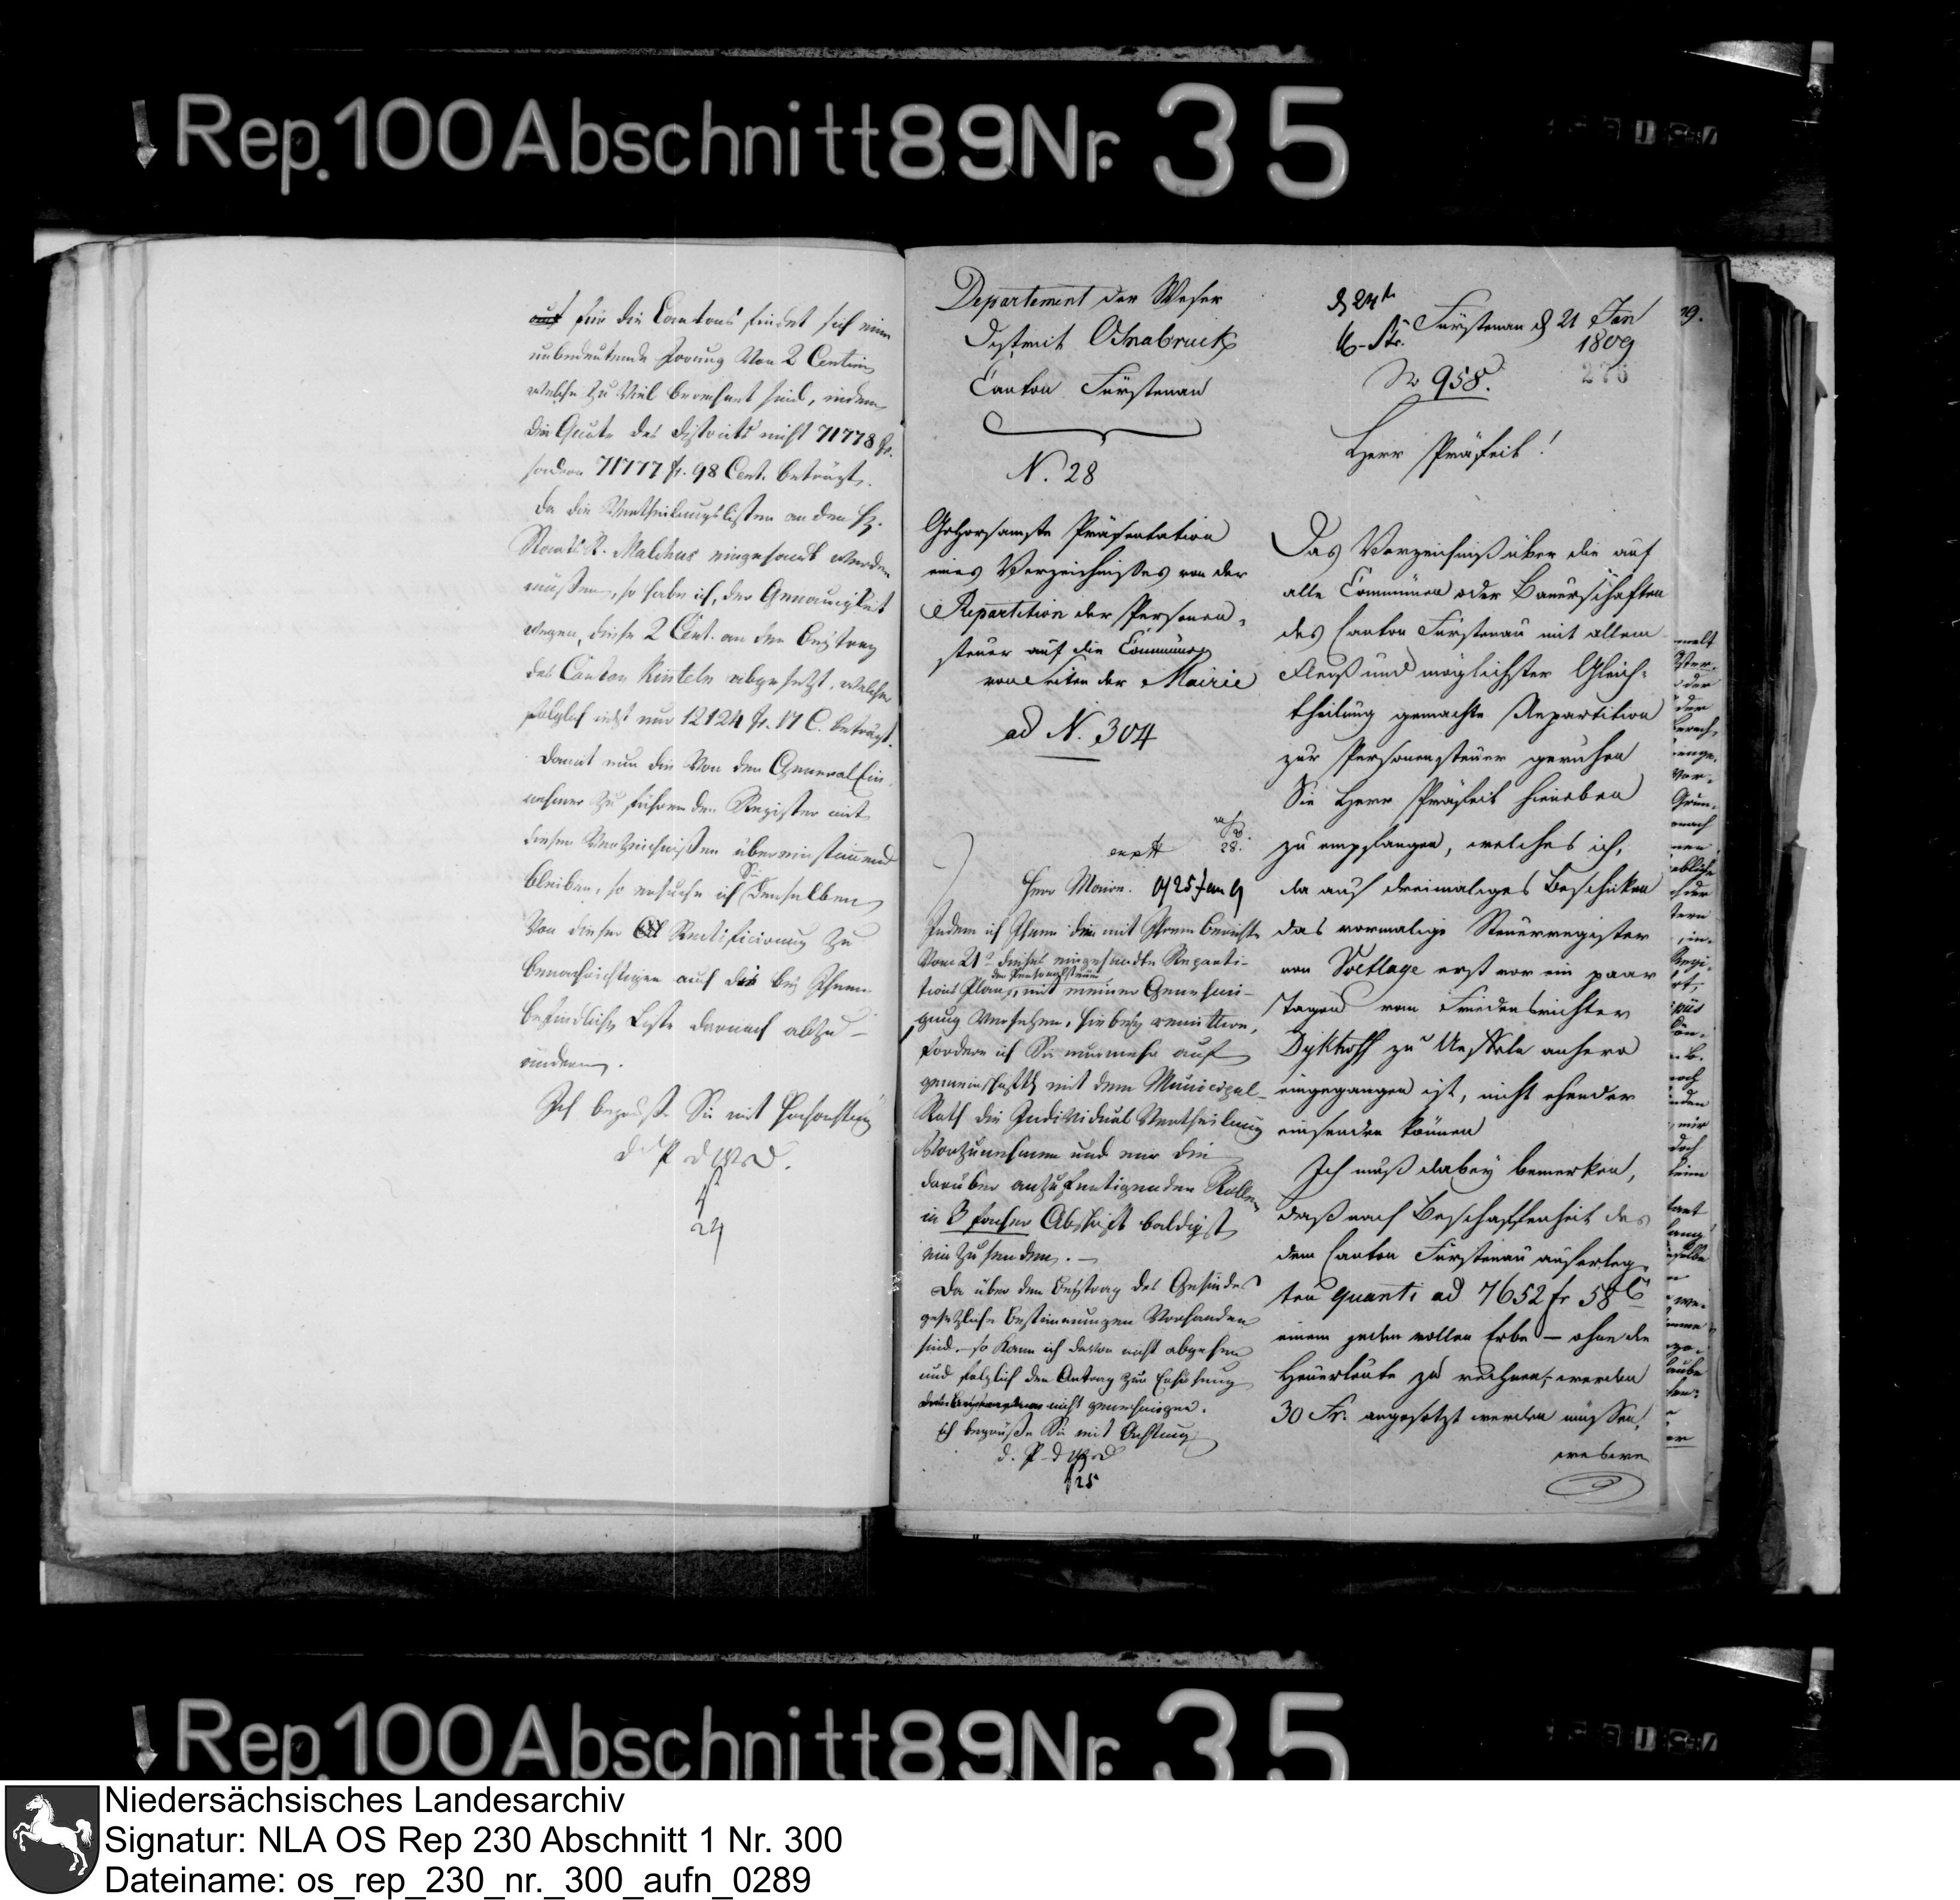 Rep. 100 Abschnitt 89 Nr. 35
auf für die Cantons findet sich eine
unbedeutende Irrung von 2 Centim
welche zu viel berechnet sind, indem
die Quote des Districts nicht 71778 fr.
sondern 71777 fr. 98 Cent. beträgt.
Da die Vertheilungslisten an den H.
Staats R. Malchus eingesandt werden
müssen, so habe ich, der Genauigkeit
wegen, diese 2 Cent. an dem Beytrag
des Canton Rinteln abgesetzt, welcher
folglich jetzt nur 12124 fr. 17 C. beträgt.
Damit nun die von dem General Ein
nehmer zu führenden Register mit
diesen Verzeichnißen übereinstimmend
bleiben, so ersuche ich Sie denselben
von dieser Rectificirung zu
benachrichtigen auch die bey Ihnen
befindliche Liste darnach abzu-
ändern.
Ich begrüße Sie mit Hochachtung
d P d W D.
24
Departement der Weser
District Osnabruck
Canton Fürstenau
N. 28
Gehorsamste Präsentation
eines Verzeichnißes von der
Repartition der Personen-
steuer auf die Communen
von Seiten der Mairie
ad N. 304
28.
Herr Maire. 25 Jan 9
Indem ich Ihnen den mit Ihrem Berichte
vom 21 dieses eingesandten Reparti-
der Personalsteuer
tions Plan, mit meiner Genehmi-
gung versehen, hiebey remittire,
fordere ich Sie nunmehr auf
gemeinschaftl mit dem Municipal-
Rath die Individual Vertheilung
vorzunehmen und mir die
darüber anzufertigenden Rollen
in 3 facher Abschrift baldigst
einzusenden. –
Da über den Beytrag des Gesindes
gesetzliche Bestimmungen vorhanden
sind, so kann ich davon nicht abgehen
und folglich den Antrag zur Erhöhung
nicht genehmigen.
Ich begrüße Sie mit Achtung
d. P d W D
25
d 24t
Fürstenau d 21 Jan
1809
No 958.
276
Herr Präfect!
Das Verzeichniß über die auf
alle Communen oder Bauerschaften
des Canton Fürstenau mit allem
Fleiß und möglichster Gleich-
theilung gemachte Repartition
zur Personensteuer geruhen
Sie Herr Präfect hieneben
zu empfangen, welches ich,
da auf dreimaliges Beschicken
das vormalige Steuerregister
von Voltlage erst vor ein paar
Tagen vom Friedensrichter
Dykhoff zu Ueffeln anhero
eingegangen ist, nicht ehender
einsenden können
Ich muß dabey bemerken,
daß nach Beschaffenheit des
dem Canton Fürstenau auferleg-
ten quanti ad 7652 fr 58 C
einem jeden vollen Erbe – ohne die
Heuerleute zu rechnen, werden
30 Fr. angesetzt werden müssen,
Rep. 100 Abschnitt 89 Nr. 35
Niedersächsisches Landesarchiv
Signatur: NLA OS Rep 230 Abschnitt 1 Nr. 300
Dateiname: os_rep_230_nr._300_aufn_0289